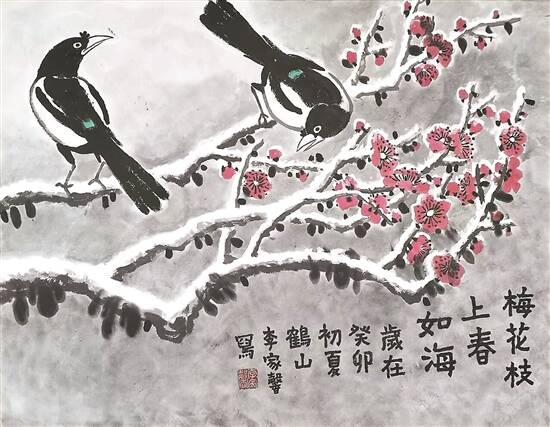 梅花枝
上春
如海
歲在
癸卯
初夏
鶴山
李家馨
寫